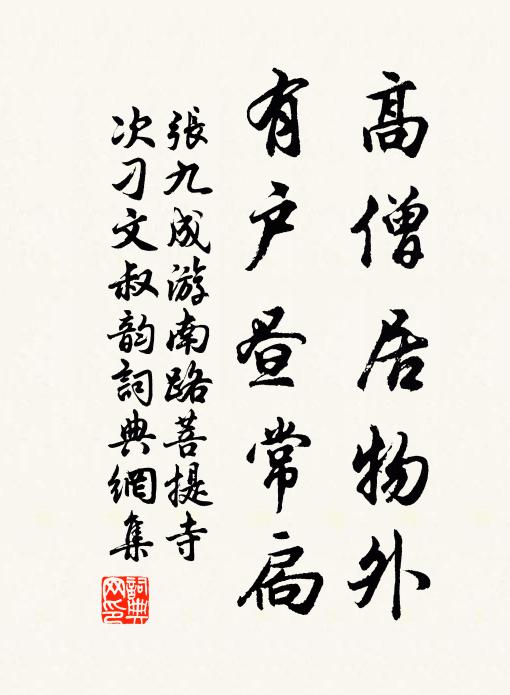 高僧居物外
有户昼常扃
張九成游南路菩提寺
次刁文叔韵詞典網集
詞典
网印